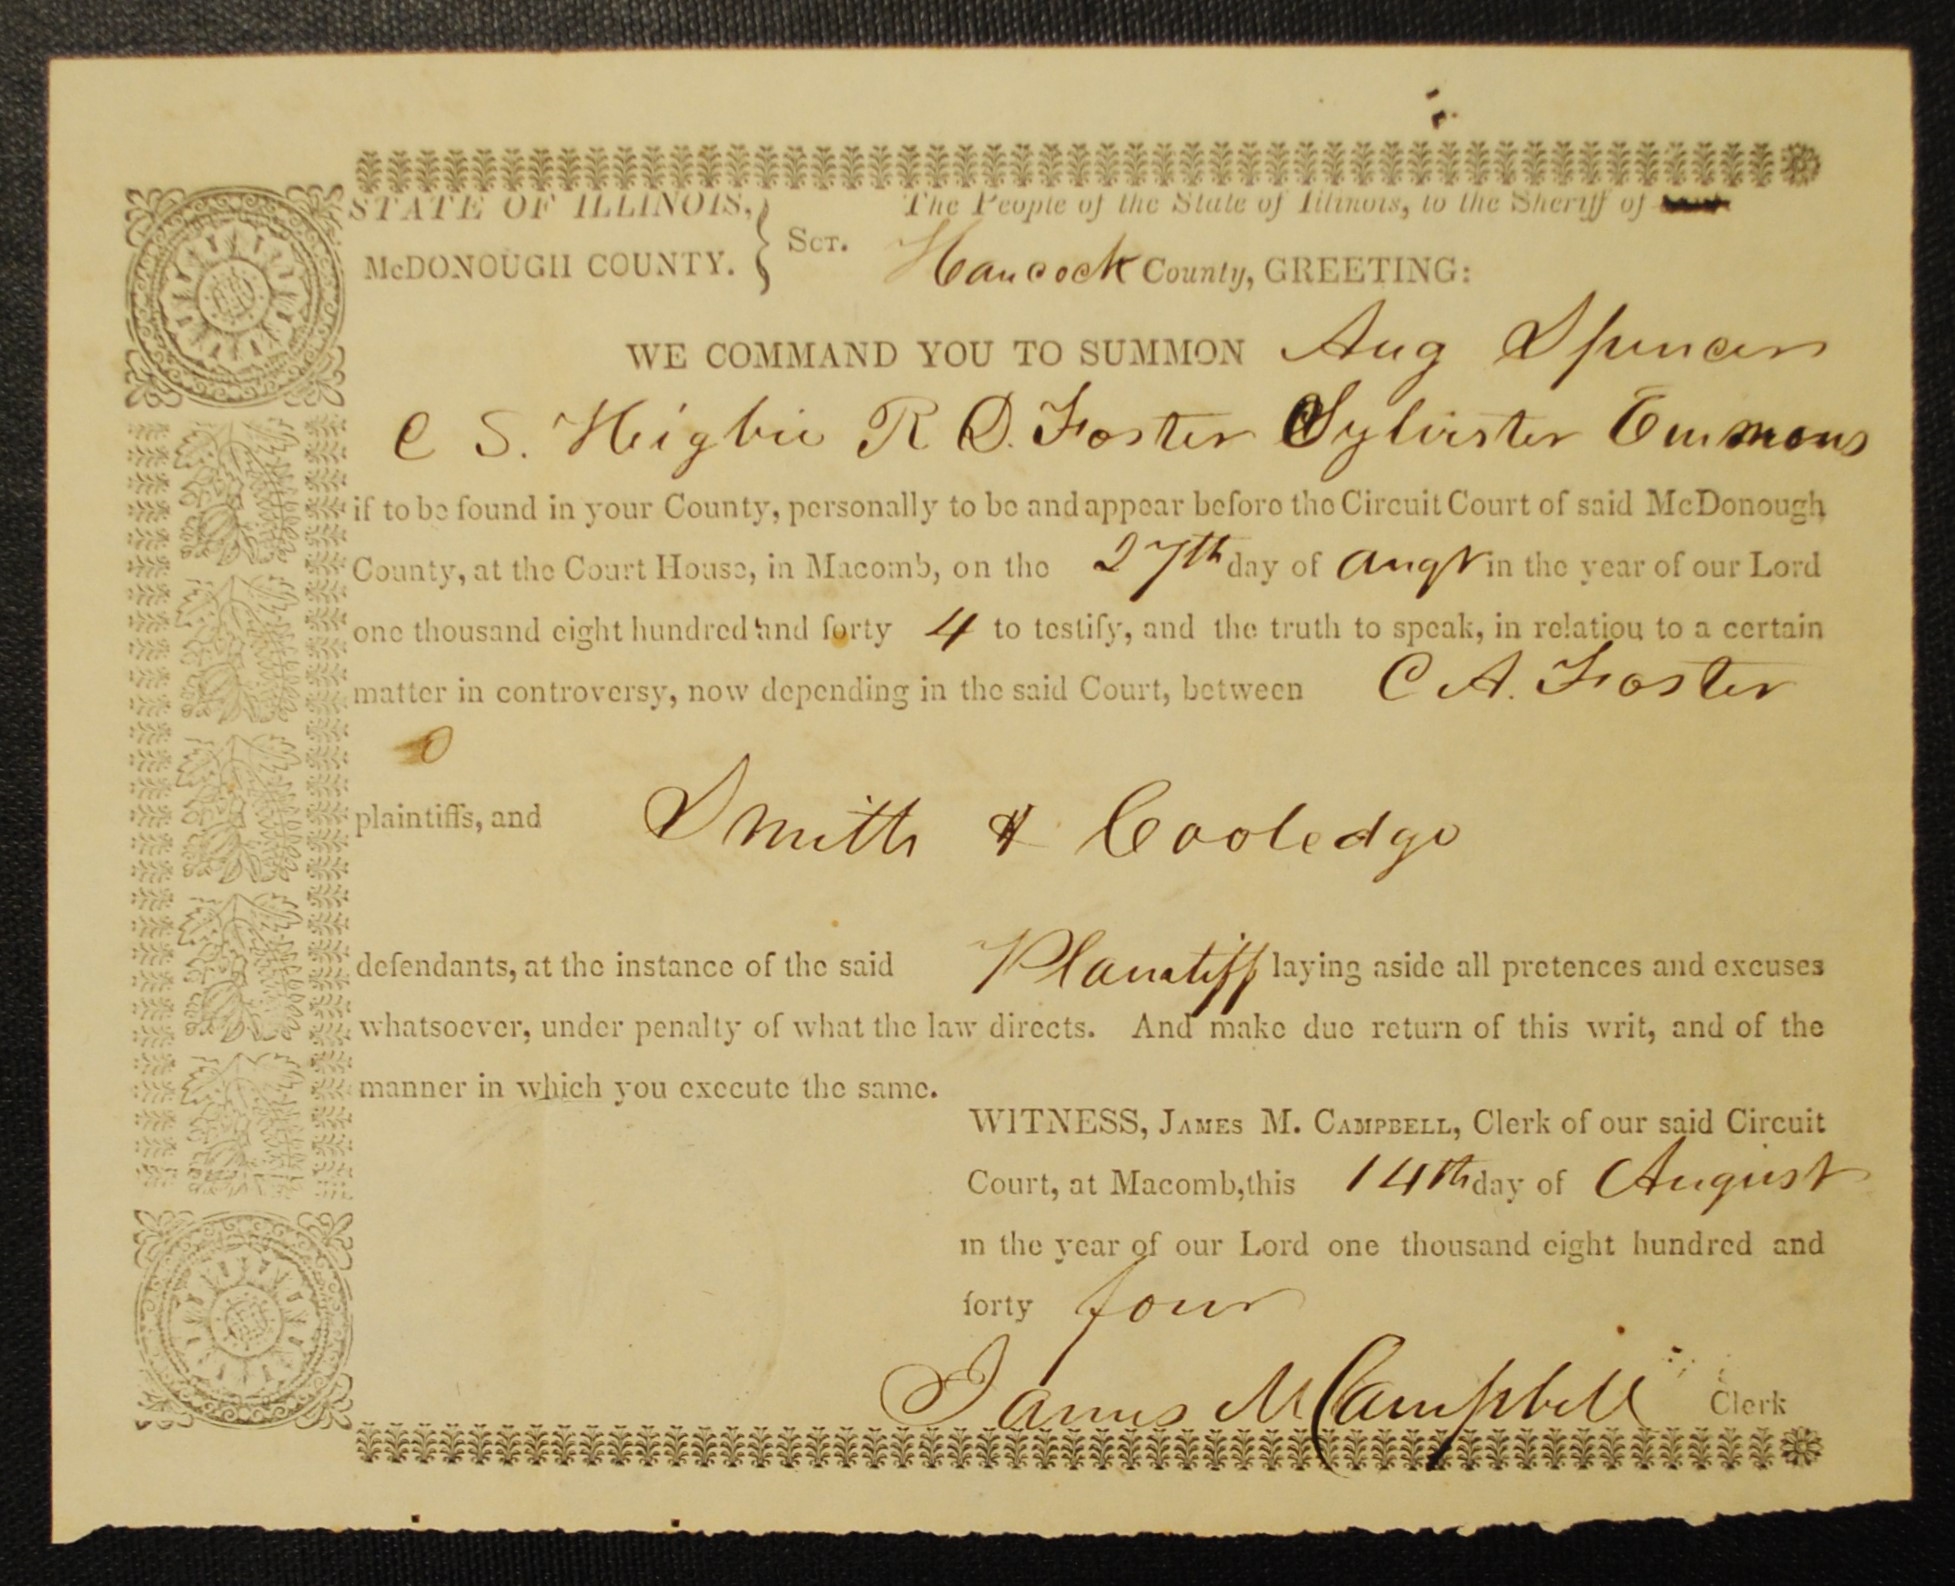 STATE OF ILLINOIS, } The People of the State of Illinois, to the Sheriff of
McDONOUGH COUNTY. } Sct. Hancock County, GREETING:
WE COMMAND YOU TO SUMMON Aug Spencer
C S. Heigbie R D. Foster Sylvister Emmons
if to be found in your County, personally to be and appear before the Circuit Court of said McDonough
County, at the Court House, in Macomb, on the 27th day of Augt in the year of our Lord
one thousand eight hundred and forty 4 to testify, and the truth to speak, in relatiou to a certain
matter in controversy, now depending in the said Court, between C A. Foster
plaintiffs, and Smith & Cooledge
defendants, at the instance of the said Planatiff laying aside all pretences and excuses
whatsoever, under penalty of what the law directs. And make due return of this writ, and of the
manner in which you execute the same.
WITNESS, James M. Campbell, Clerk of our said Circuit
Court, at Macomb, this 14th day of August
in the year of our Lord one thousand eight hundred and
forty four
James M Campbell Clerk